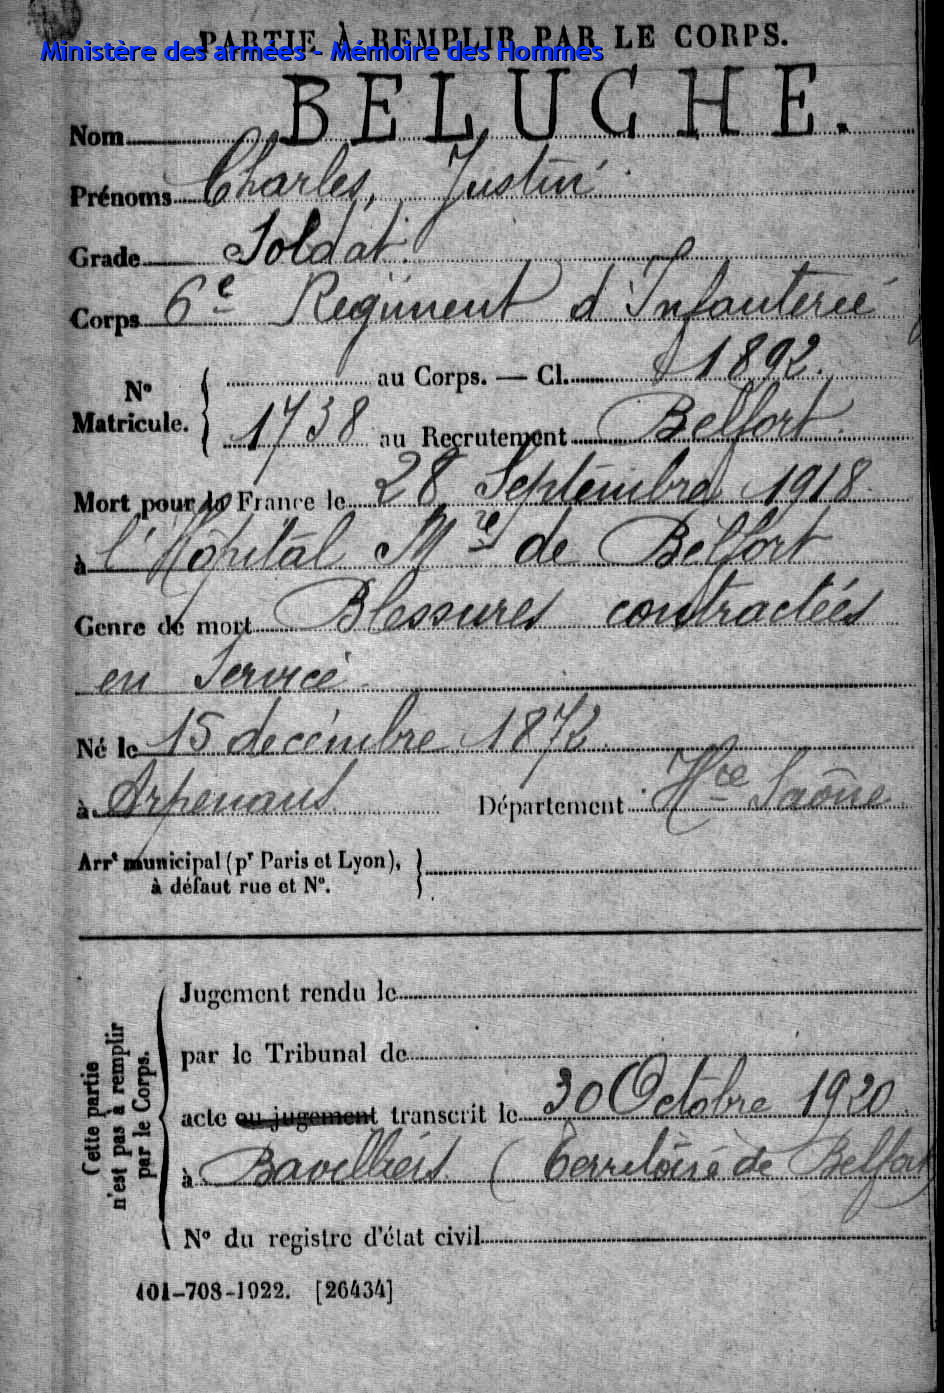 PARTIE À REMPLIR PAR LE CORPS.
Ministère des armées - Mémoire des Hommes
Nom BELUCHE.
Prénoms Charles, Justin
Grade Soldat.
Corps 6e Régiment d'Infanterie
N° Matricule. { au Corps. — Cl. 1892.
1738 au Recrutement Belfort.
Mort pour la France le 28 Septembre 1918
à l'Hôpital Mre de Belfort
Genre de mort Blessures contractées
en Service
Né le 15 décembre 1872.
à Arpenans Département Hte Saône
Arrt municipal (pr Paris et Lyon),
à défaut rue et N°.
Cette partie n'est pas à remplir par le Corps.
Jugement rendu le
par le Tribunal de
acte ou jugement transcrit le 30 Octobre 1920.
à Bavilliers (Territoire de Belfort)
N° du registre d'état civil
101-708-1922. [26434]